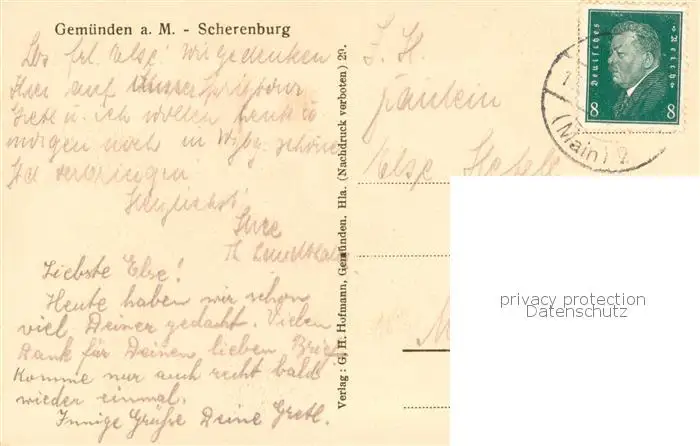 Gemünden a. M. - Scherenburg
Frl. Else! Wir gedenken
Ihrer auf unserer
Gretl u. ich wollen heute u
morgen noch in Wzbg. schöne
verbringen
Herzlichst
Liebste Else!
Heute haben wir schon
viel Deiner gedacht. Vielen
Dank für Deinen lieben Brief
Komme nur auch recht bald
wieder einmal.
Innige Grüße Deine Gretl.
Verlag: G. H. Hofmann, Gemünden. Hla. (Nachdruck verboten) 29.
Fräulein
Else
Deutsches Reich
8 8
(Main) 2
privacy protection
Datenschutz